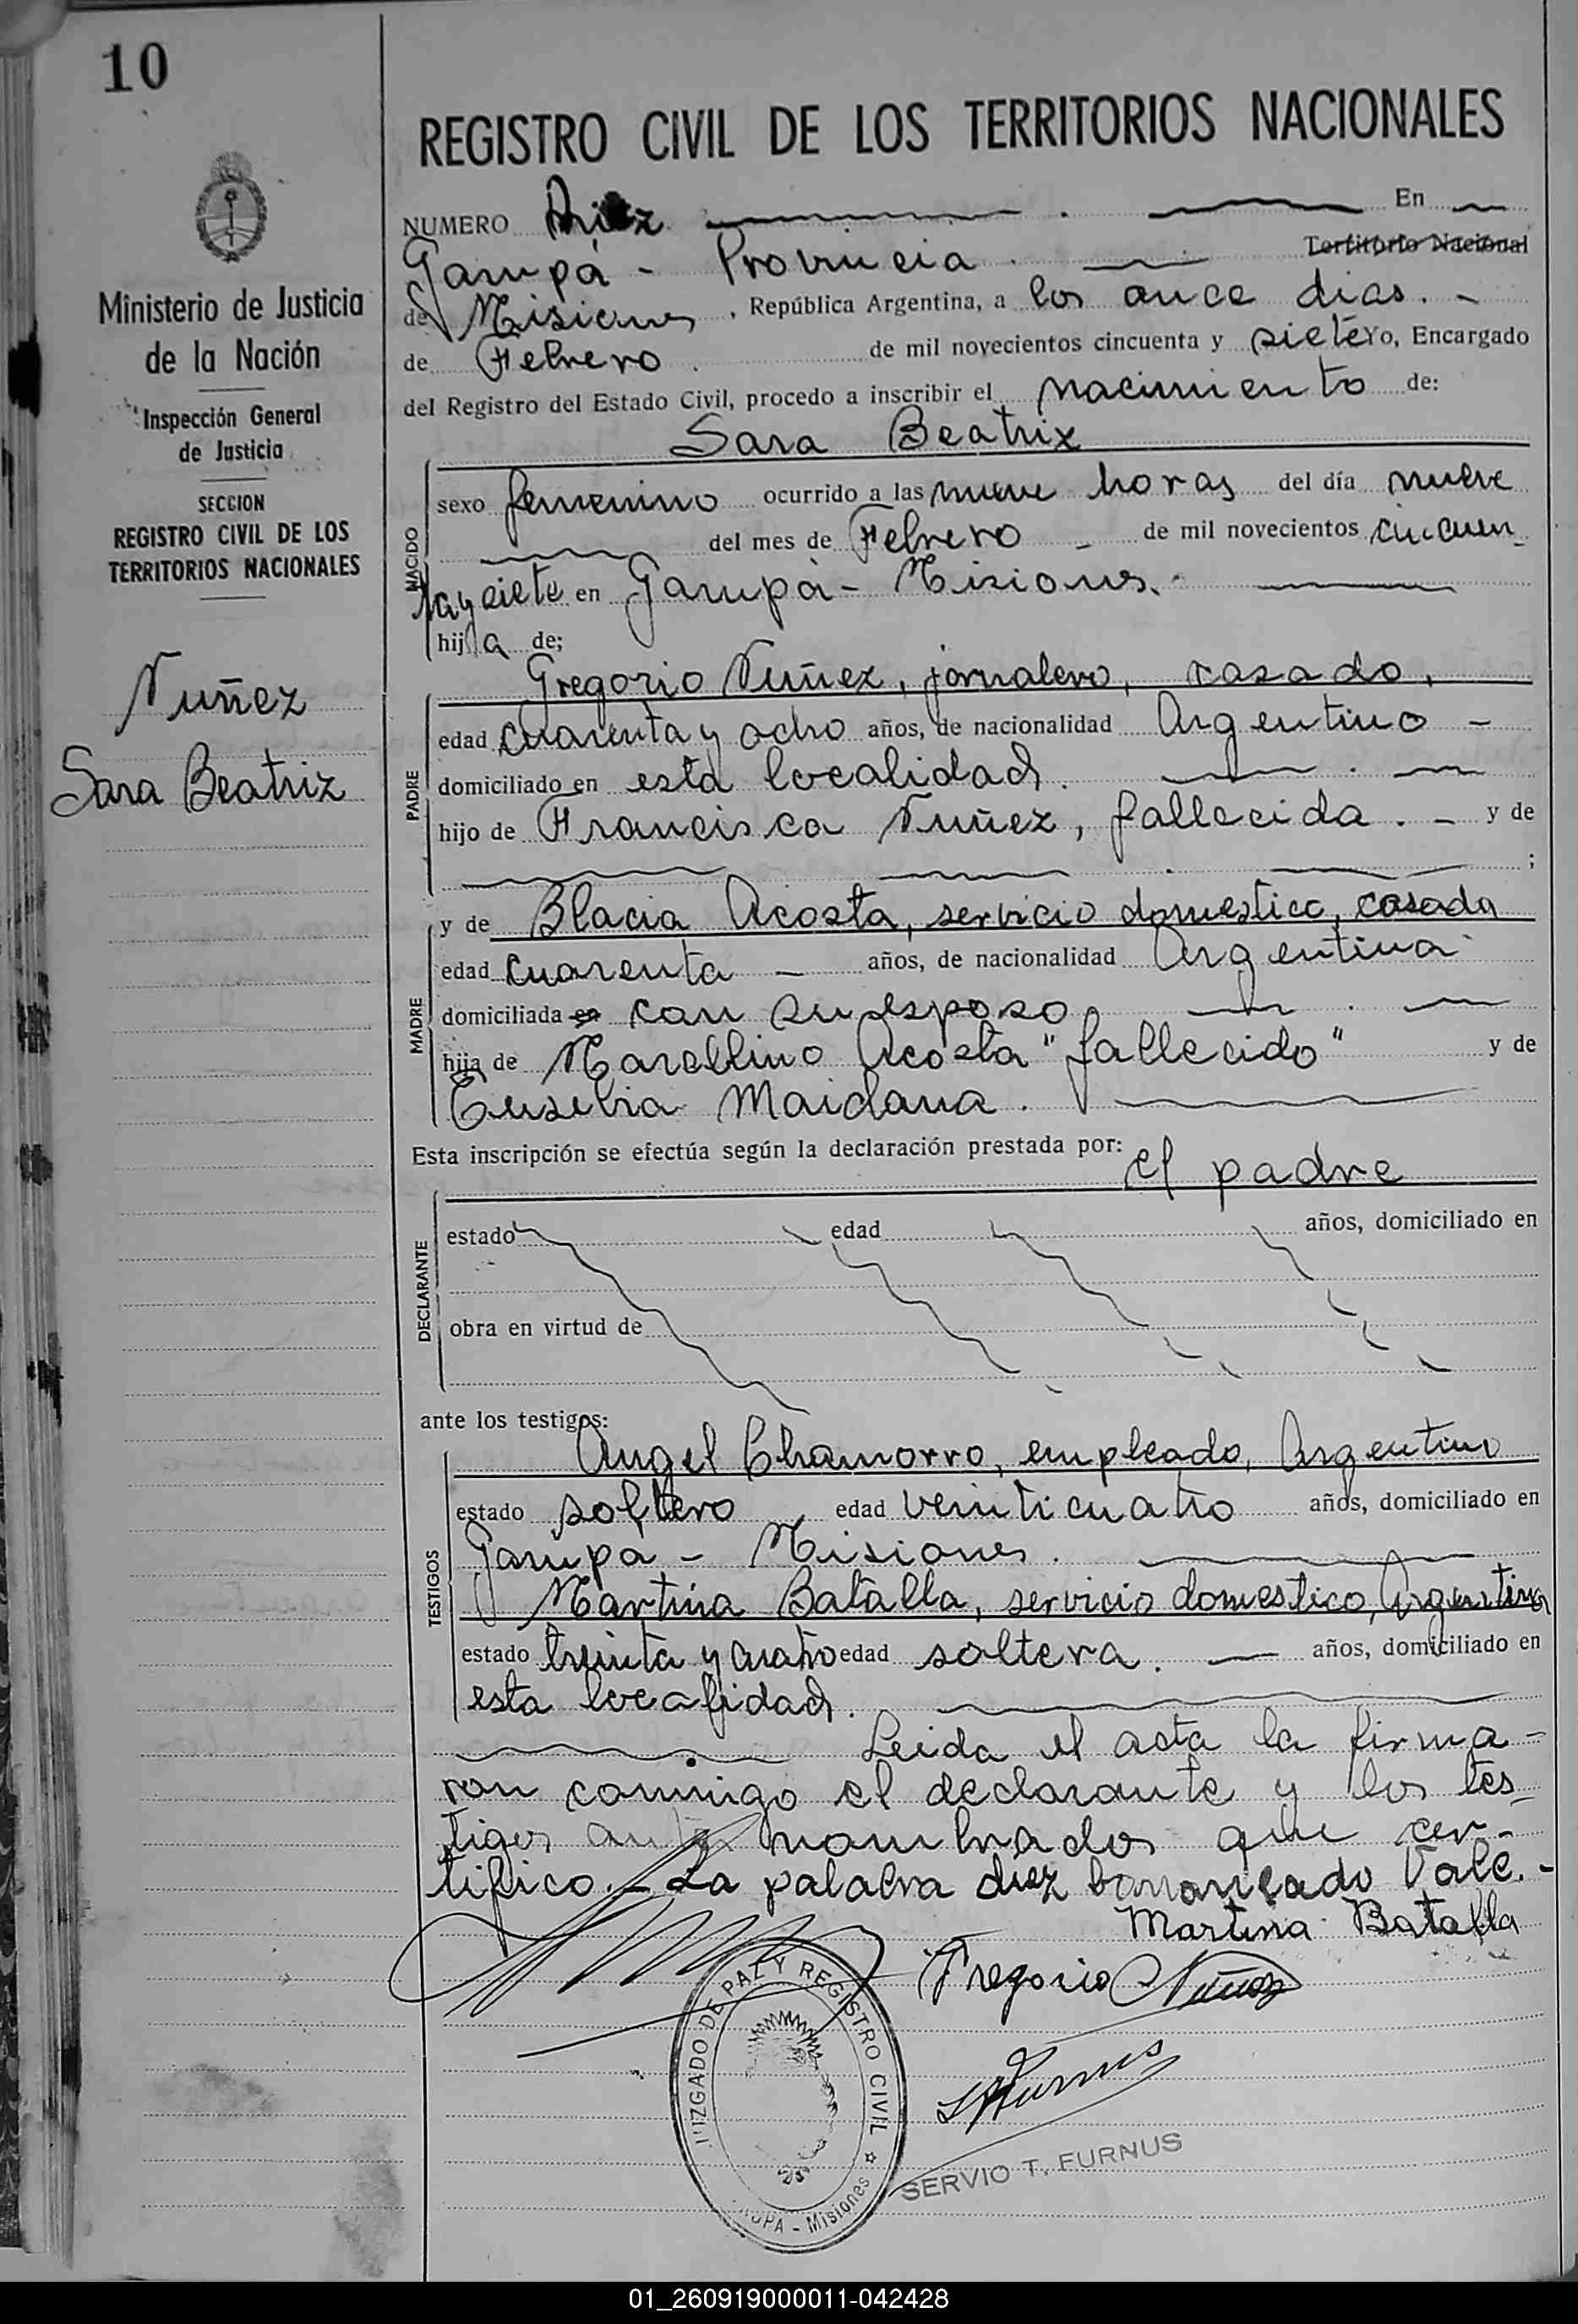 10
Ministerio de Justicia
de la Nación
Inspección General
de Justicia
SECCION
REGISTRO CIVIL DE LOS
TERRITORIOS NACIONALES
Nuñez
Sara Beatriz
REGISTRO CIVIL DE LOS TERRITORIOS NACIONALES
NUMERO Diez En
Garupá - Provincia Territorio Nacional
de Misiones, República Argentina, a los once dias.-
de Febrero de mil novecientos cincuenta y siete Yo, Encargado
del Registro del Estado Civil, procedo a inscribir el nacimiento de:
Sara Beatriz
NACIDO
sexo femenino ocurrido a las nueve horas del día nueve
del mes de Febrero - de mil novecientos cincuen
ta y siete en Garupá - Misiones.
hija de;
Gregorio Nuñez, jornalero, casado,
PADRE
edad cuarenta y ocho años, de nacionalidad Argentino -
domiciliado en esta localidad.
hijo de Francisca Nuñez, fallecida. - y de
;
y de Blacia Acosta, servicio domestico, casada
MADRE
edad cuarenta - años, de nacionalidad Argentina
domiciliada en con su esposo
hija de Marcelino Acosta "fallecido" y de
Eusebia Maidana.
Esta inscripción se efectúa según la declaración prestada por: el padre
DECLARANTE
estado edad años, domiciliado en
obra en virtud de
ante los testigos:
Angel Chamorro, empleado, Argentino
TESTIGOS
estado soltero edad veinticuatro años, domiciliado en
Garupa - Misiones.
Martina Batalla, servicio domestico, Argentina
estado treinta y cuatro edad soltera. - años, domiciliado en
esta localidad.
Leida el acta la firma-
ron conmigo el declarante y los tes-
tigos antes nombrados que cer-
tifico.- La palabra diez borroneado Vale.-
Martina Batalla
Gregorio Nuñez
Furnus
JUZGADO DE PAZ Y REGISTRO CIVIL
RUPA - Misiones
SERVIO T. FURNUS
01_260919000011-042428